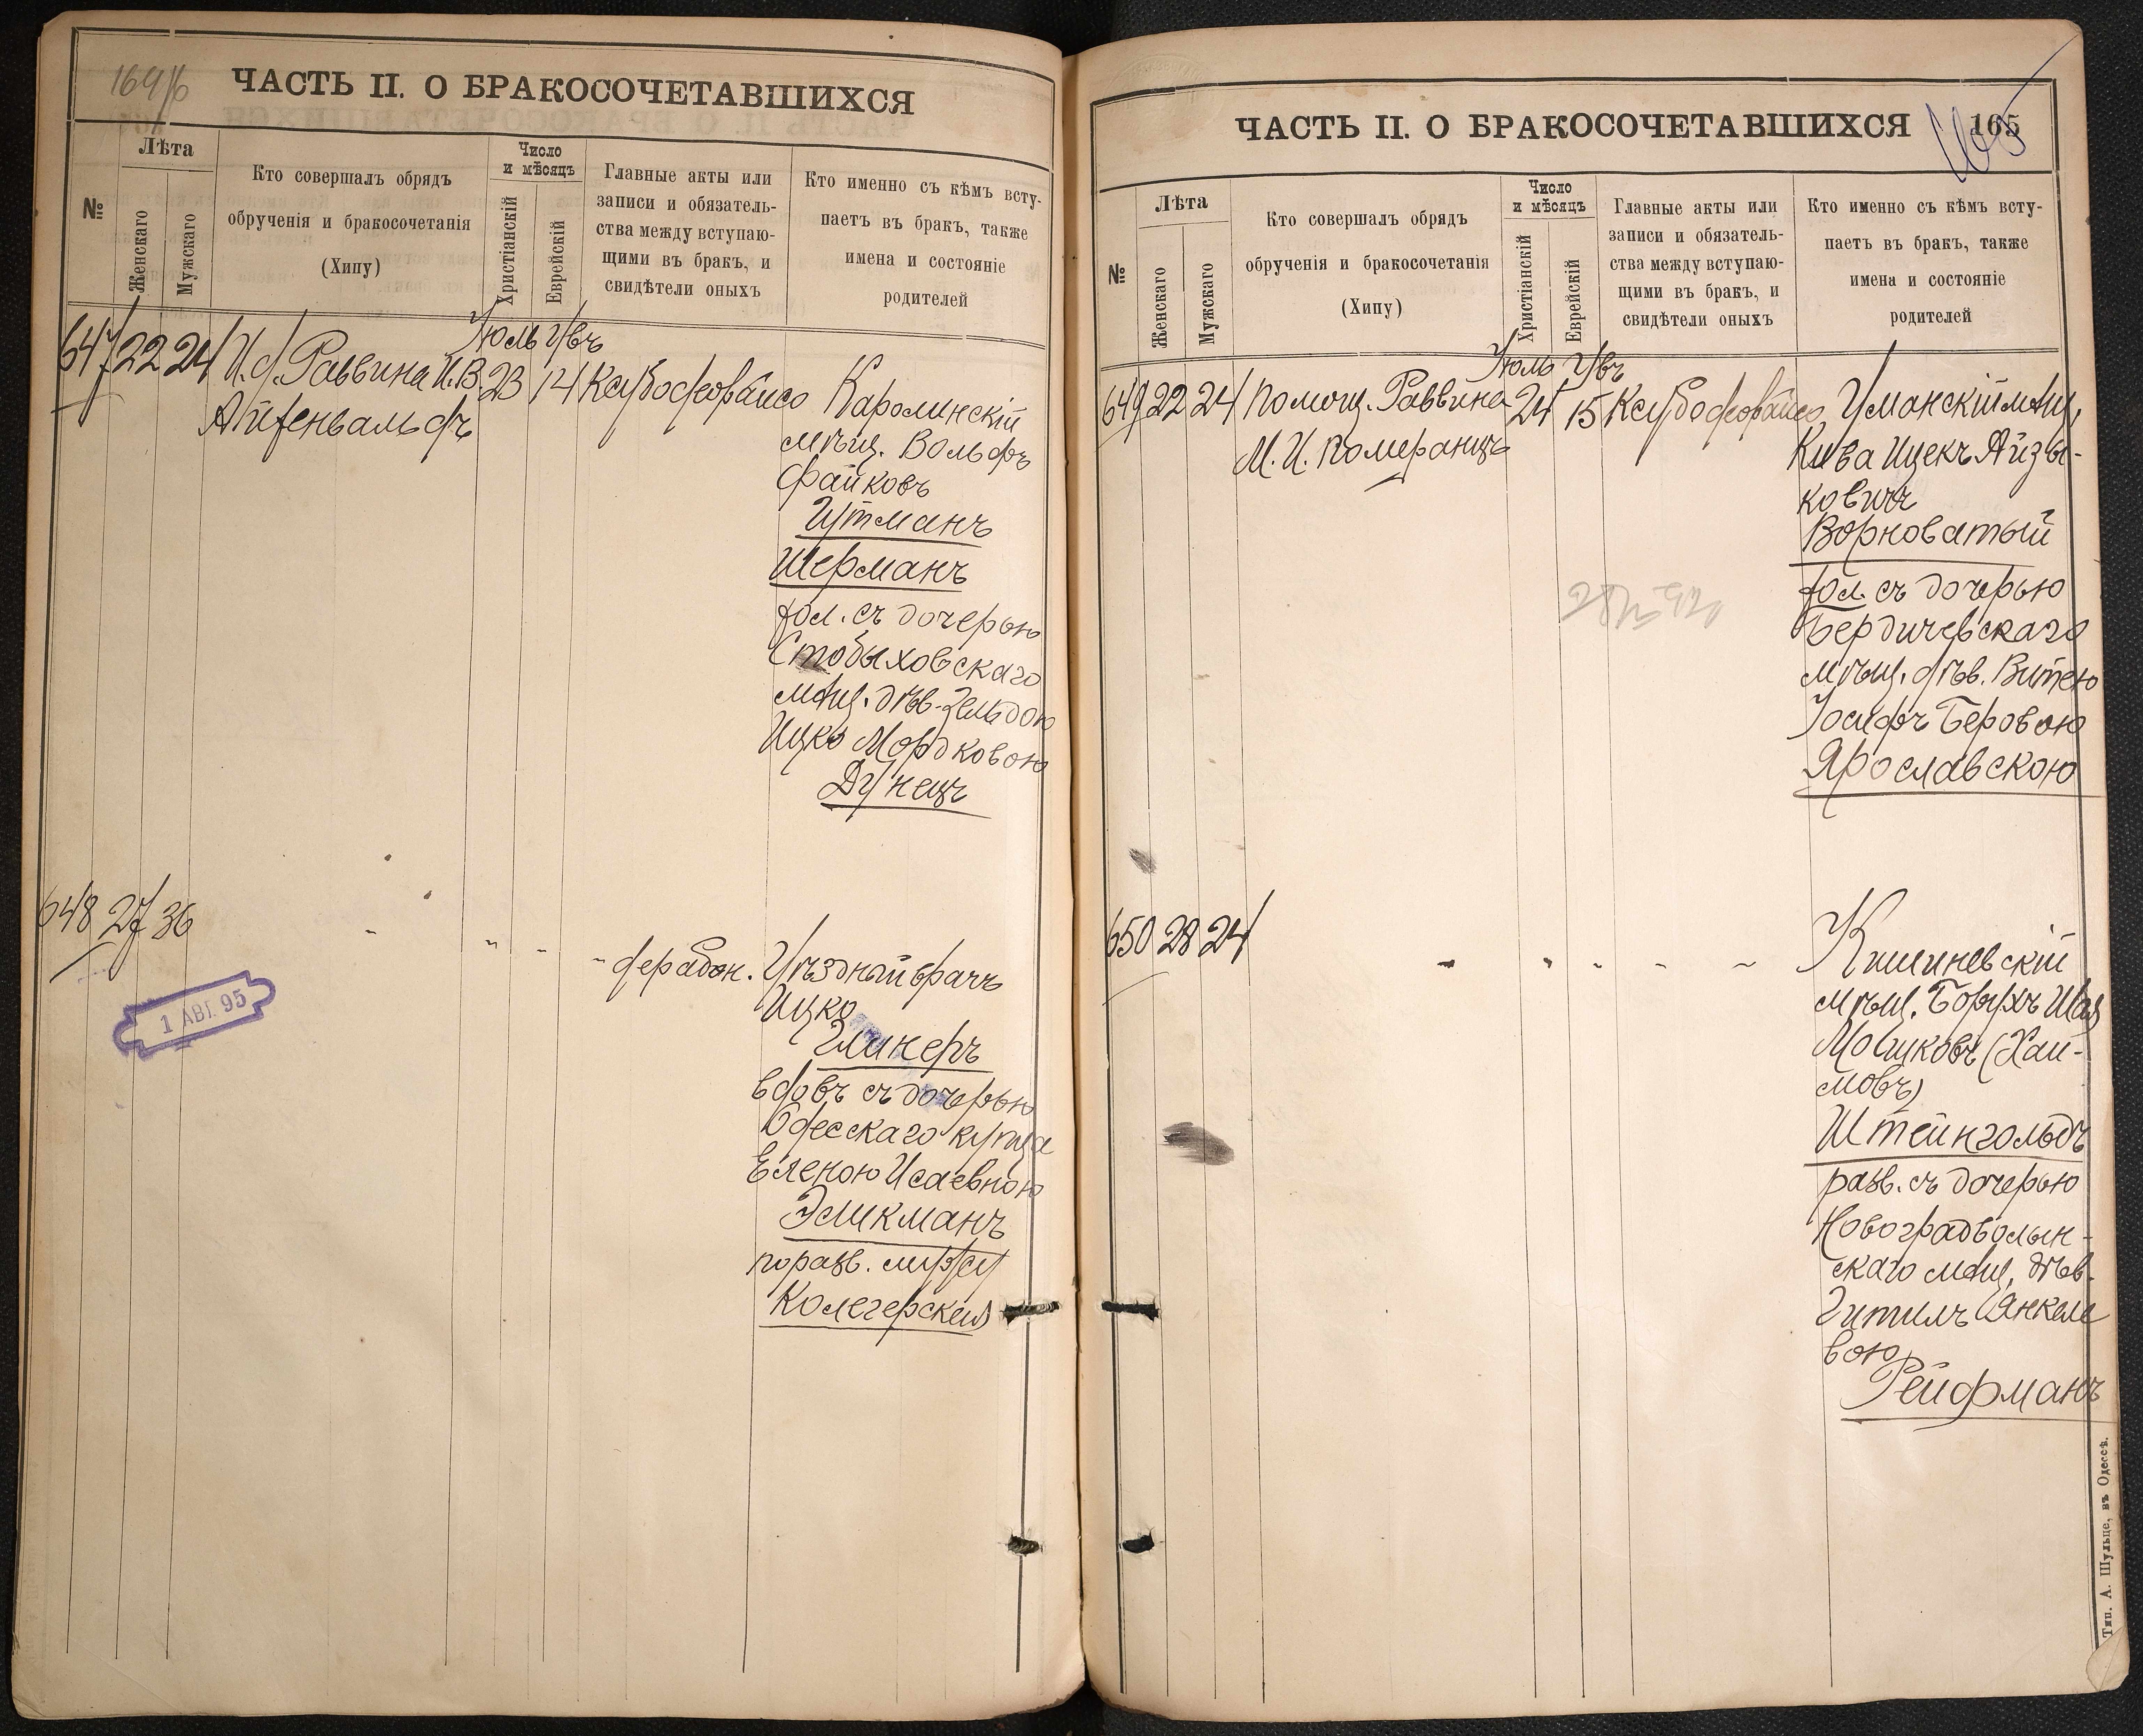 164/б
ЧАСТЬ II. О БРАКОСОЧЕТАВШИХСЯ
№
Лѣта
Женскаго
Мужскаго
Кто совершалъ обрядъ
обрученія и бракосочетанія
(Хипу)
Число
и мѣсяцъ
Христіанскій
Еврейскій
Главные акты или
записи и обязатель-
ства между вступаю-
щими въ бракъ, и
свидѣтели оныхъ
Кто именно съ кѣмъ всту-
паетъ въ бракъ, также
имена и состояніе
родителей
Іюль
647 22 24 И. д. Раввина И. В. 23 14
Айзенвальдъ
Каролинскій
мѣщ. Вольфъ
Файковъ
Гутманъ
Шерманъ
хол. съ дочерью
Стобыховскаго
мѣщ. дѣв. Зельдою
Ицко Мордковою
Дунецъ
648 27 36 " " " "
Уѣздный врачъ
Ицко
Глинеръ
вдовъ съ дочерью
Одесскаго купца
Еленою Исаевною
Эликманъ
по разв. мужу
1 АВГ. 95
ЧАСТЬ II. О БРАКОСОЧЕТАВШИХСЯ
165
165
№
Лѣта
Женскаго
Мужскаго
Кто совершалъ обрядъ
обрученія и бракосочетанія
(Хипу)
Число
и мѣсяцъ
Христіанскій
Еврейскій
Главные акты или
записи и обязатель-
ства между вступаю-
щими въ бракъ, и
свидѣтели оныхъ
Кто именно съ кѣмъ всту-
паетъ въ бракъ, также
имена и состояніе
родителей
Іюль
649 22 24 Помощ. Раввина 24 15
М. И. Померанцъ
Уманскій мѣщ.
Кива Ицекъ Айзы-
ковичъ
Ворноватый
хол. съ дочерью
Бердичевскаго
мѣщ. дѣв. Витею
Іосифъ Беровою
Ярославскою
650 28 24 " " " " "
Кишиневскій
мѣщ. Борухъ Шая
Мошковъ (Хаи-
мовъ)
Штейнгольдъ
разв. съ дочерью
Новоградволын-
скаго мѣщ. дѣв.
Гитилъ Янкеле
вою
Рейфманъ
Тип. А. Шульце, въ Одессѣ.